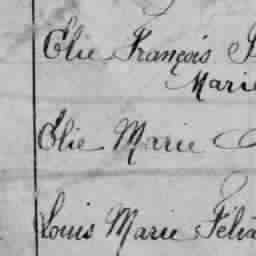 Elie François
Marie
Elie Marie
Louis Marie Féli